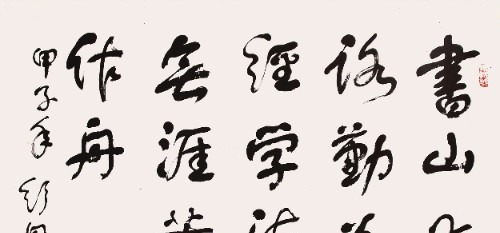 書山
路勤為
徑学海
無涯苦
作舟
甲子年